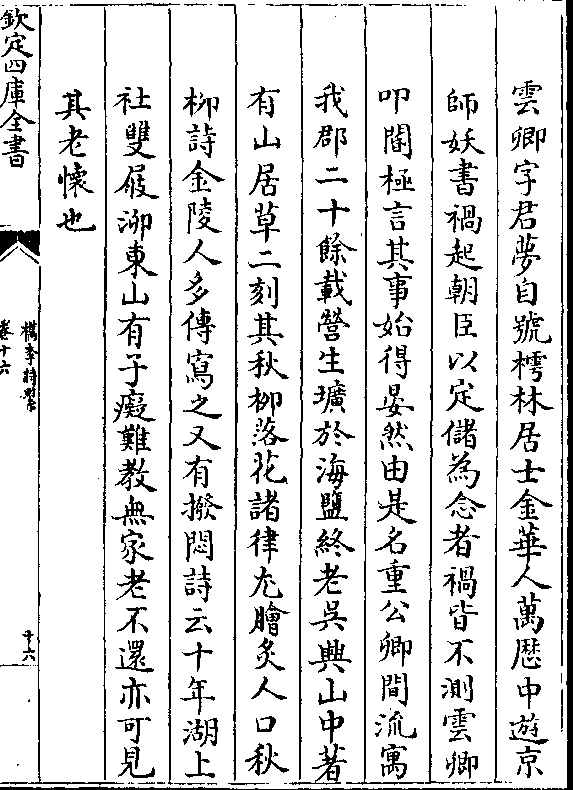 雲卿字君夢自號樗林居士金華人萬厯中遊京
師妖書禍起朝臣以定儲為念者禍皆不測雲卿
叩閽極言其事始得晏然由是名重公卿間流寓
我郡二十餘載營生壙於海鹽終老吳興山中著
有山居草二刻其秋柳落花諸律尤膾炙人口秋
柳詩金陵人多傳寫之又有撥悶詩云十年湖上
社雙屐泖東山有子癡難教無家老不還亦可見
其老懷也
欽定四庫全書
檇李詩繫
卷十六